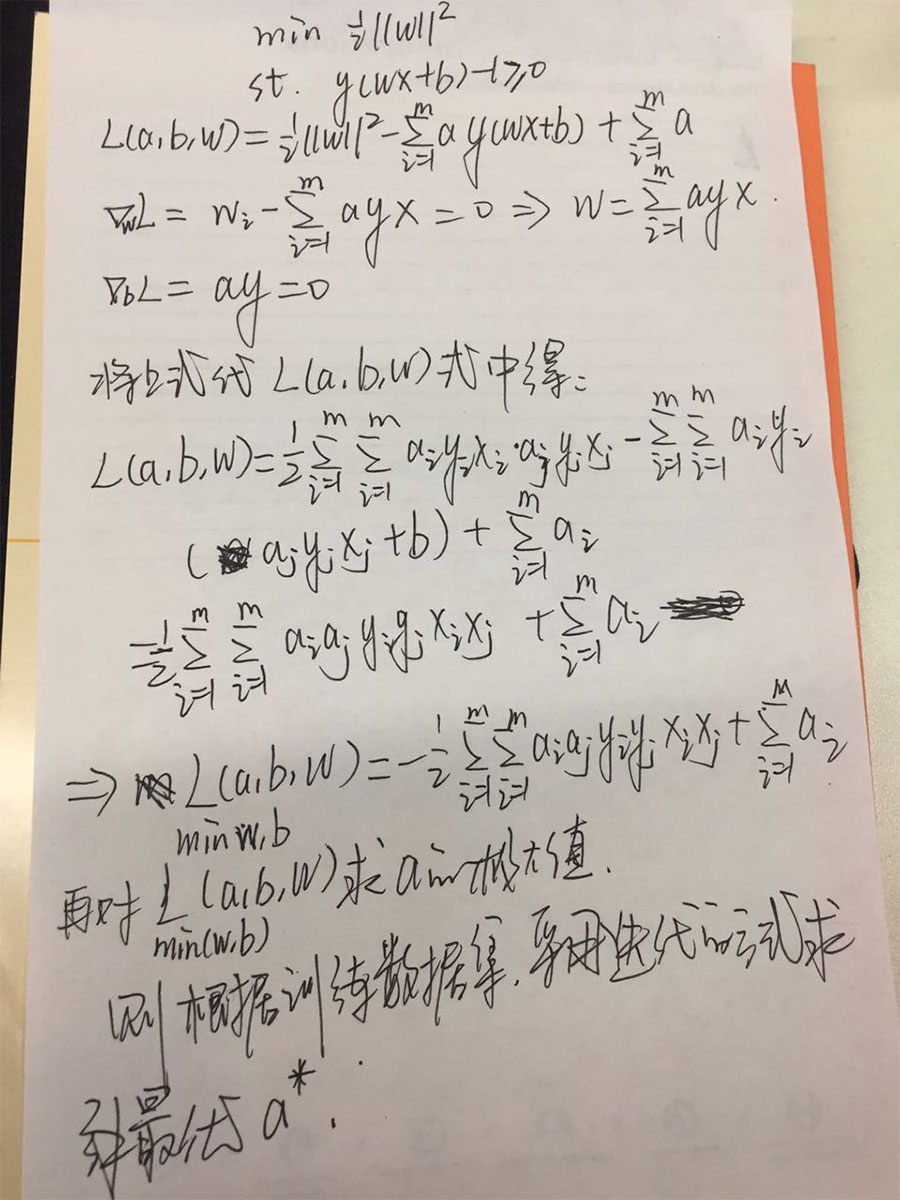 min ½||w||²
st. y(wx+b)-1≥0
L(a,b,w)=½||w||²-∑_{i=1}^{m} a y(wx+b)+∑_{i=1}^{m} a
∇_wL=w_i-∑_{i=1}^{m} ayx=0⇒w=∑_{i=1}^{m} ayx.
∇_bL=ay=0
将上式代L(a,b,w)式中得:
L(a,b,w)=½∑_{i=1}^{m}∑_{i=1}^{m} a_iy_ix_i·a_jy_jx_j-∑_{i=1}^{m}∑_{i=1}^{m} a_iy_i
(a_jy_jx_j+b)+∑_{i=1}^{m} a_i
=-½∑_{i=1}^{m}∑_{i=1}^{m} a_ia_jy_iy_jx_ix_j+∑_{i=1}^{m} a_i
⇒L(a,b,w)=-½∑_{i=1}^{m}∑_{i=1}^{m} a_ia_jy_iy_jx_ix_j+∑_{i=1}^{m} a_i
min w,b
再对L(a,b,w)求a的极大值.
min(w,b)
则根据训练数据集,采用迭代的方式求
到最优a*.